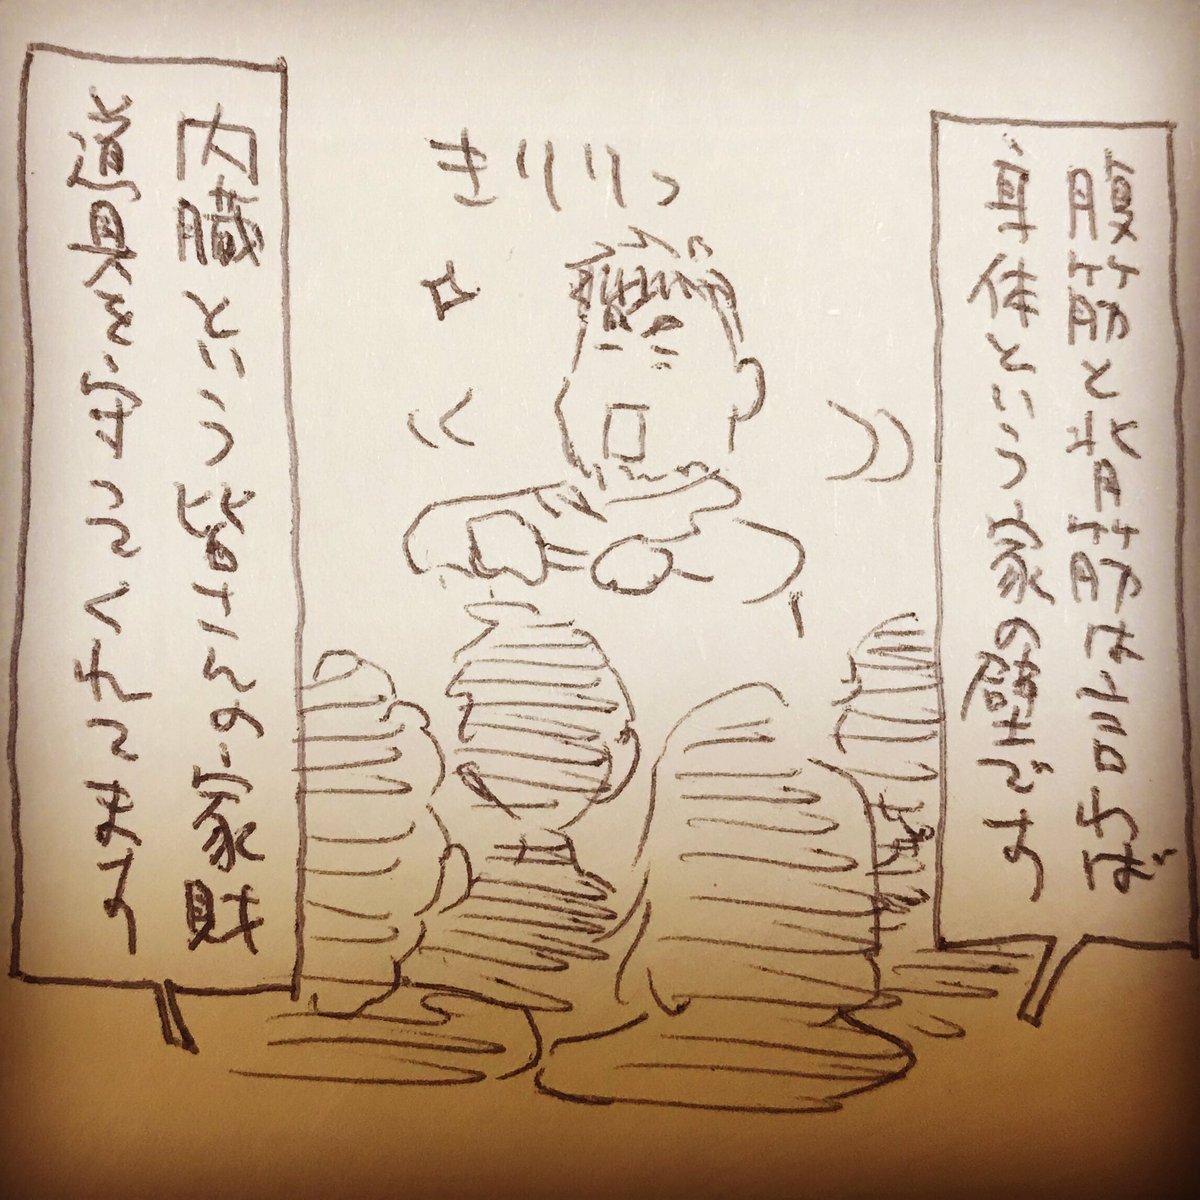 腹筋と背筋は言わば
身体という家の壁です
きりりっ
内臓という皆さんの家財
道具を守ってくれてます